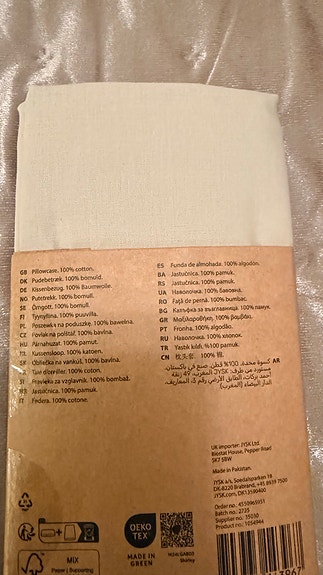 GB Pillowcase. 100% cotton.
DK Pudebetræk. 100% bomuld.
DE Kissenbezug. 100% Baumwolle.
NO Putetrekk. 100% bomull.
SE Örngott. 100% bomull.
FI Tyynyliina. 100% puuvilla.
PL Poszewka na poduszkę. 100% bawełna.
CZ Povlak na polštář. 100% bavlna.
HU Párnahuzat. 100% pamut.
NL Kussensloop. 100% katoen.
SK Obliečka na vankúš. 100% bavlna.
FR Taie d'oreiller. 100% coton.
SI Prevleka za vzglavnik. 100% bombaž.
HR Jastučnica. 100% pamuk.
IT Federa. 100% cotone.
ES Funda de almohada. 100% algodón.
BA Jastučnica. 100% pamuk.
RS Jastučnica. 100% pamuk.
UA Наволочка. 100% бавовна.
RO Față de pernă. 100% bumbac.
BG Калъфка за възглавница. 100% памук.
GR Μαξιλαροθήκη, 100% βαμβάκι
PT Fronha. 100% algodão.
RU Наволочка. 100% хлопок.
TR Yastık kılıfı. %100 pamuk.
CN 枕头套. 100% 棉.
AR
كسوة مخدة. 100% قطن. صنع في باكستان.
مستورد من طرف: JYSK المغرب، 49 زنقة
أحمد بركات، الطابق الأرضي رقم 3، المعاريف،
الدار البيضاء (المغرب)
UK importer: JYSK Ltd.
Biostat House, Pepper Road
SK7 5BW
Made in Pakistan.
JYSK a/s, Soedalsparken 18
DK-8220 Brabrand, +45 8939 7500
JYSK.com, DK13590400
Order no.: 4510965931
Batch no.: 2725
Supplier no.: 39030
Product no.: 1054944
OEKO
TEX®
MADE IN
GREEN
Shirley
FSC
MIX